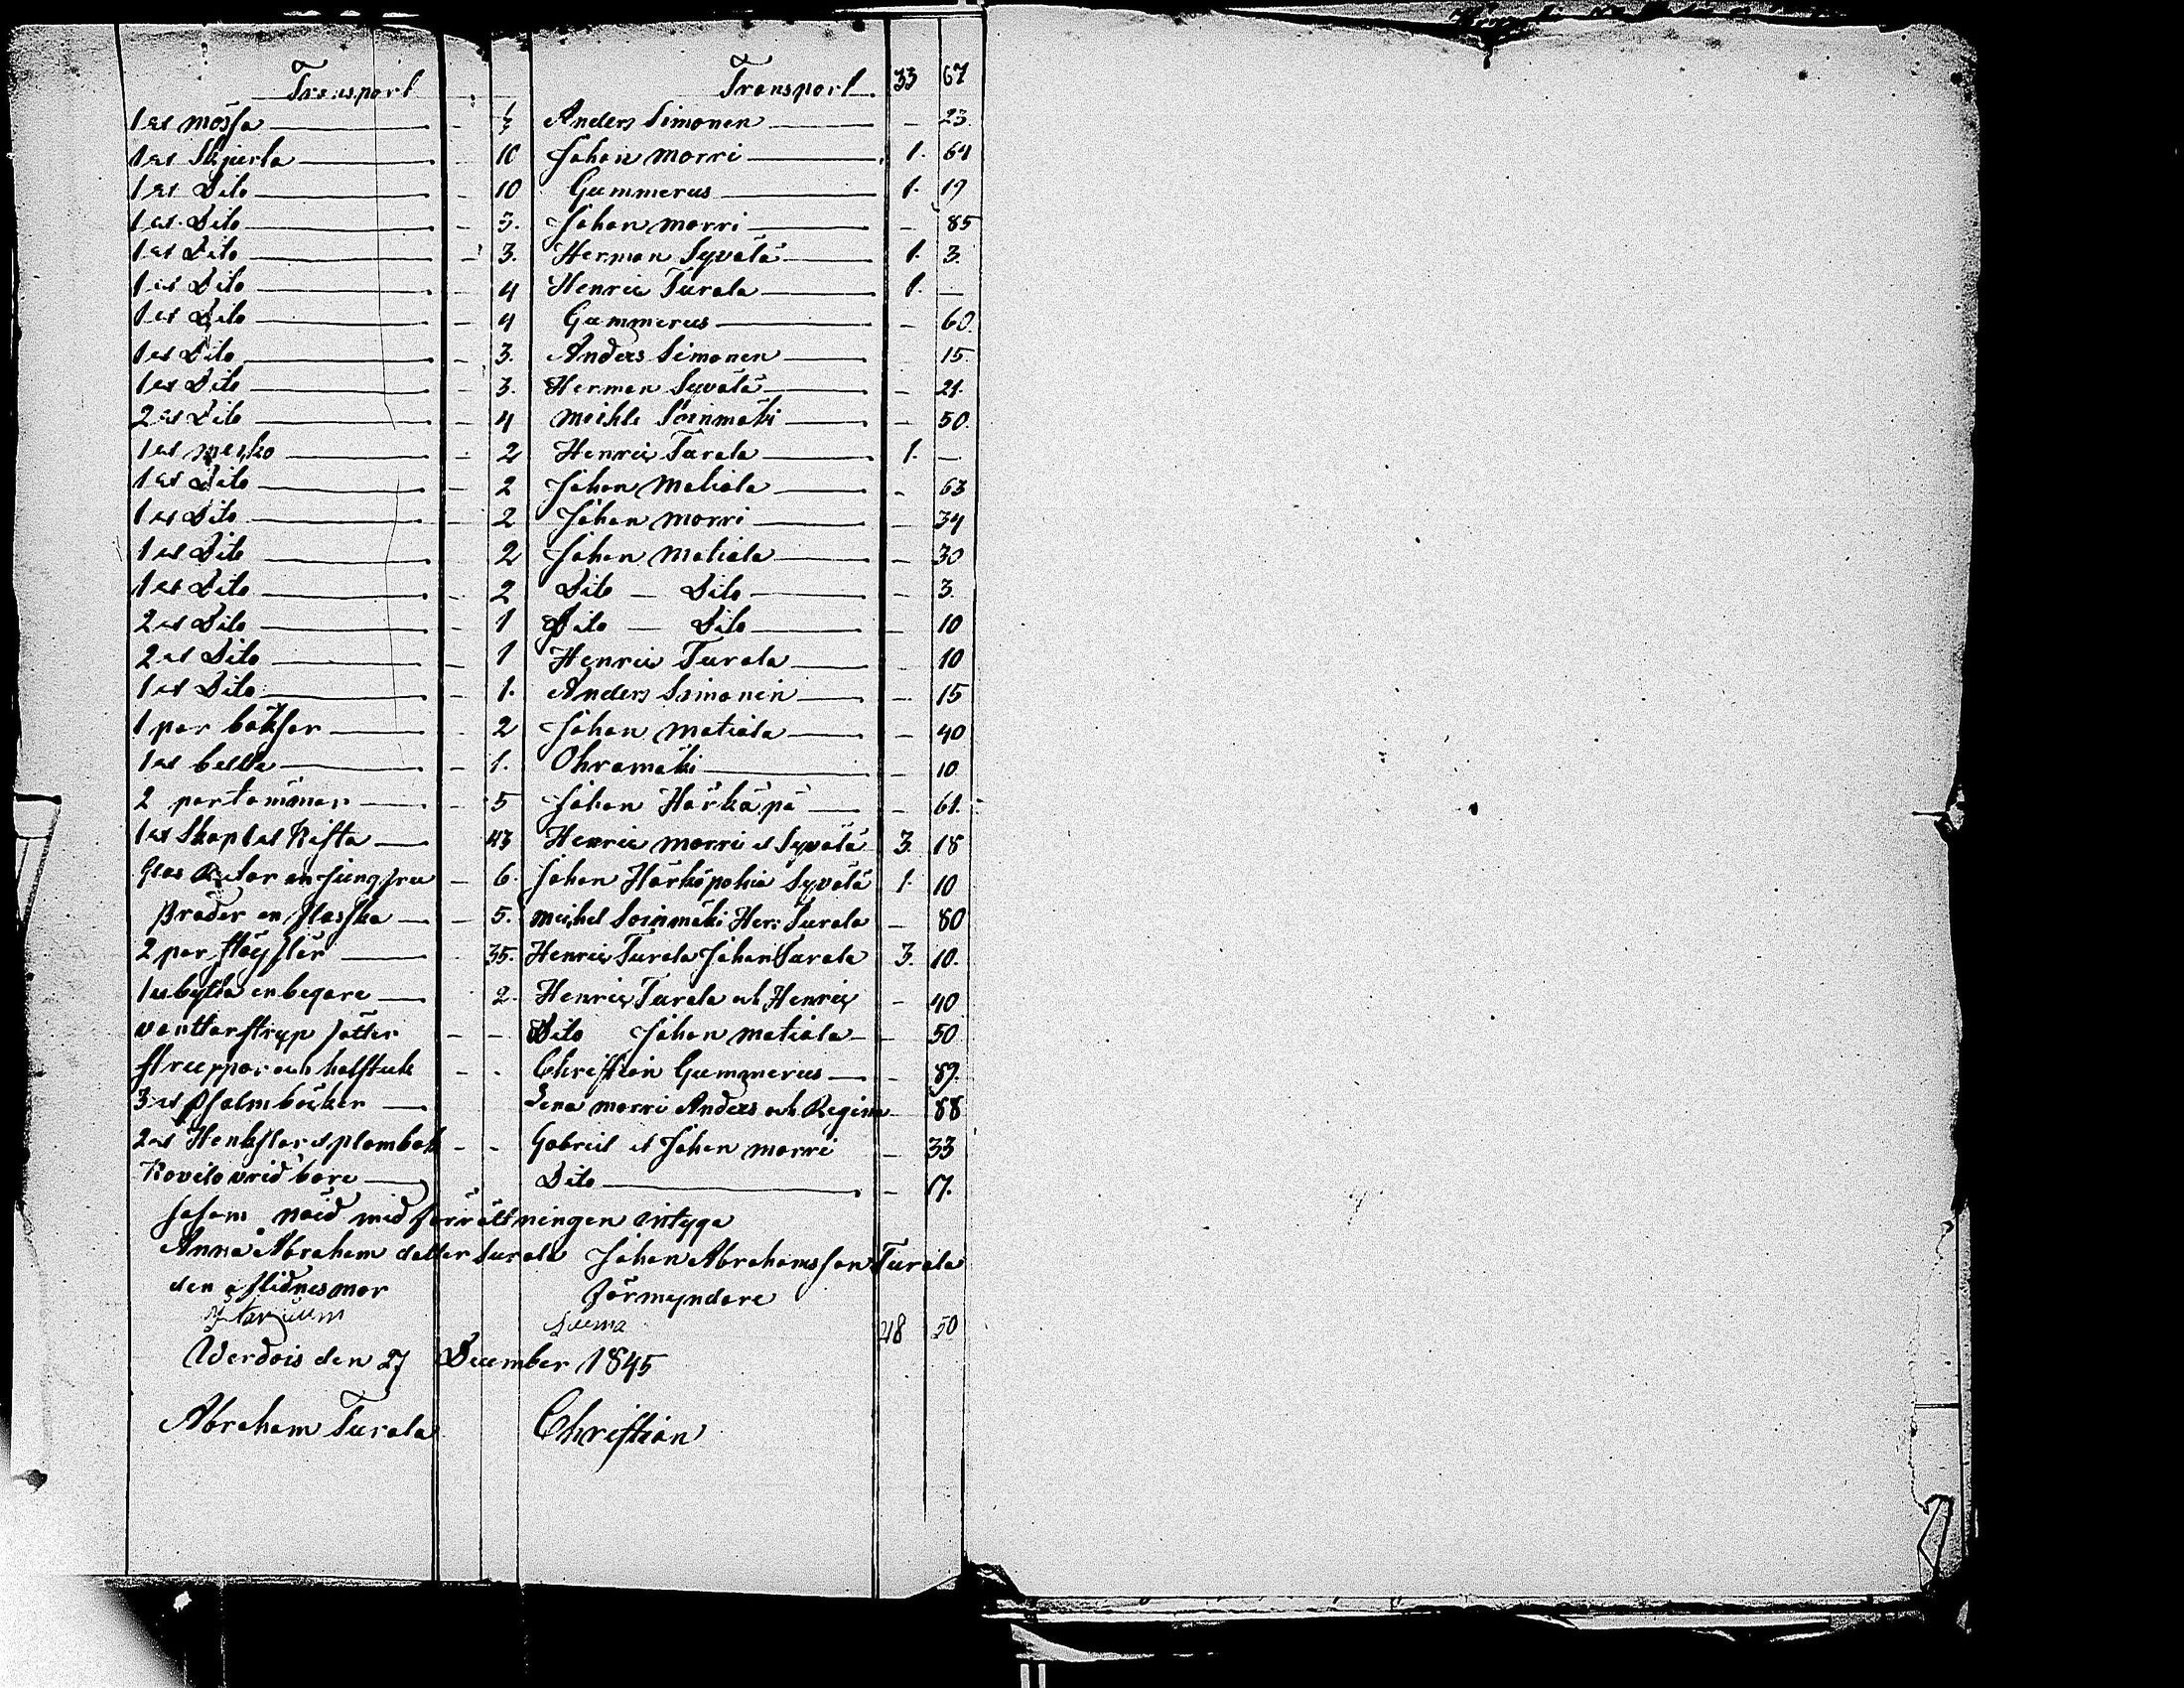 Transport Transport 33 67
1 st mössa Anders Simonen - 23.
1 st Skjurta - 10 Johan Morri 1. 64
1 st Dito - 10 Gummerus 1. 19
1 st Dito - 3. Johan Morri - 85
1 st Dito - 3. Herman Syvälä 1. 3.
1 st Dito - 4 Henric Turala 1. -
1 st Dito - 4 Gummerus - 60.
1 st Dito - 3. Anders Simonen 15.
1 st Dito - 3. Herman Syvälä - 21.
2 st Dito - 4 Meikle Soinmäki - 50.
1 st mesko - 2 Henric Turala 1. -
1 st Dito - 2 Johan Matiala - 63
1 st Dito - 2 Johan Morri - 34
1 st Dito 2 Johan Matiala - 30
1 st Dito - 2 Dito - Dito - 3.
2 st Dito - 1 Dito - Dito - 10
2 st Dito - 1 Henric Turala - 10
1 st Dito - 1. Anders Soimonen - 15
1 par böksor - 2 Johan Matiala - 40
1 st bellte - 1. Ohramäki - 10
2 par tömmar - 5 Johan Härkäpä - 61.
1 st Skap 1 st Kista 43 Henric Morri et Syvälä 3. 18
Glas en Jungfru - 6. Johan Syvälä 1. 10
Bräder en flasska - 5. Meikel Soinmäki Hen: Turala - 80
2 par 35. Henric Turala Johan Turala 3. 10.
1 st bytta en begare 2. Henric Turala och Henric - 40
vanttar - - Dito Johan Matiala - 50
struppar och halstuk - - Christian Gummerus - 89.
3 st Psalmböcker Lena Morri Anders och Regina 88
2 st plombok - - Gabreil et Johan Morri - 33
Dito - 17.
Såsom nöid med förrättningen intyga
Anna Abraham dotter Turala Johan Abrahamsson Turala
den aflidnes mor Förmyndare
Suma 48 50
Werdois den 27 December 1845
Abraham Turala Christian